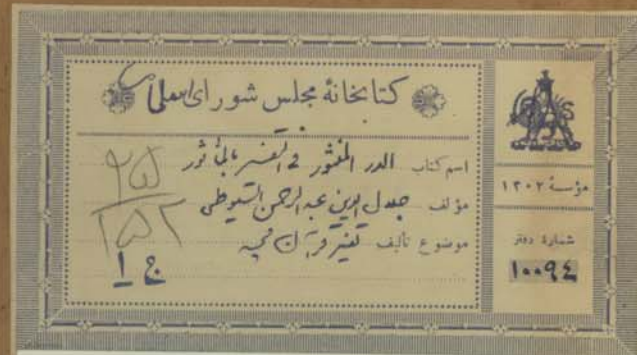 كتابخانهٔ مجلس شورای
اسم كتاب الدر المنثور فی التفسير بالمأثور
مؤلف جلال الدين عبد الرحمن السيوطی
موضوع تأليف تفسير قرآن مجيد
ج ١
مؤسسهٔ ١٣٠٢
شمارهٔ دفتر
١٠٠٩٤